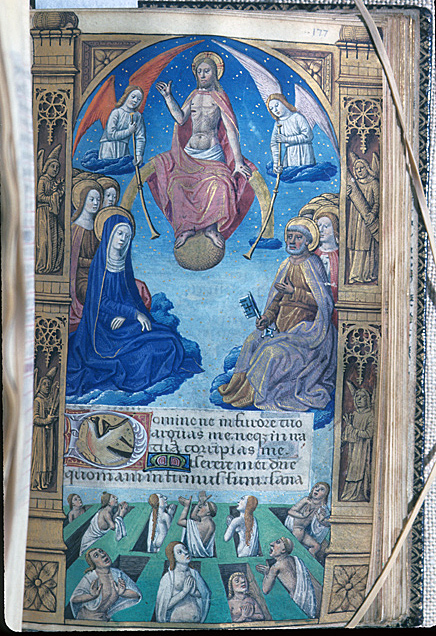 177
Domine ne in furore tuo
arguas me. neqz in ira
tua corripias me.
Miserere mei dne
quoniam infirmus sum. sana